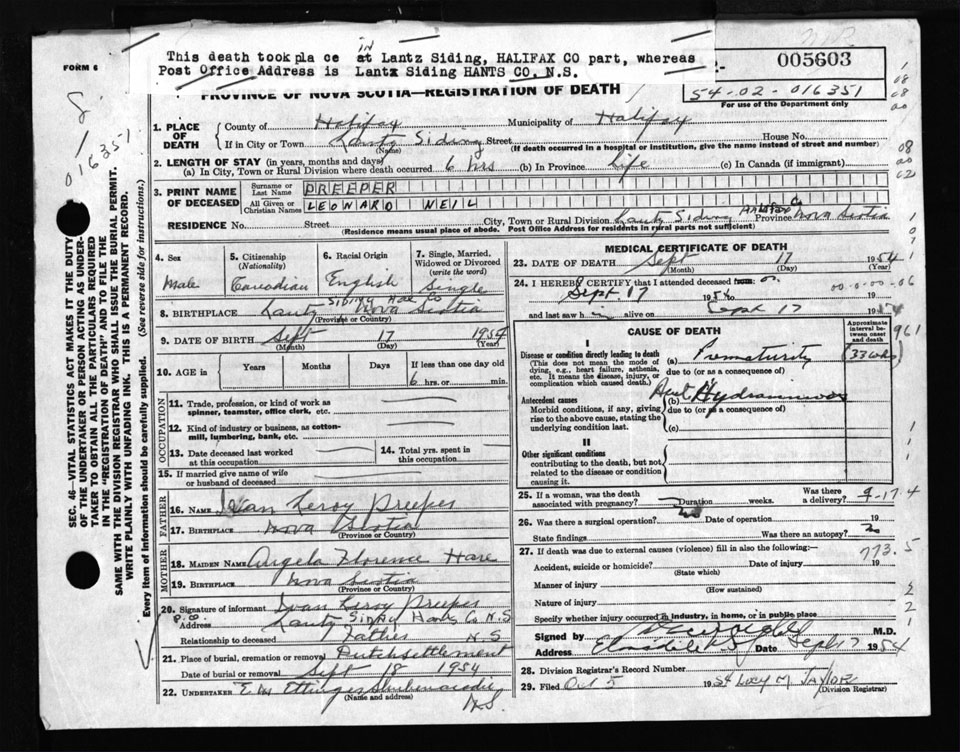 This death took pla ce IN at Lantz Siding, HALIFAX CO part, whereas
Post Office Address is Lantz Siding HANTS CO, N.S.
FORM 6
005603
54-02-016351
For use of the Department only
PROVINCE OF NOVA SCOTIA—REGISTRATION OF DEATH
016351
SEC. 46—VITAL STATISTICS ACT MAKES IT THE DUTY
OF THE UNDERTAKER OR PERSON ACTING AS UNDER-
TAKER TO OBTAIN ALL THE PARTICULARS REQUIRED
IN THE "REGISTRATION OF DEATH" AND TO FILE THE
SAME WITH THE DIVISION REGISTRAR WHO SHALL ISSUE THE BURIAL PERMIT.
WRITE PLAINLY WITH UNFADING INK. THIS IS A PERMANENT RECORD.
Every item of Information should be carefully supplied. (See reverse side for instructions.)
1. PLACE OF DEATH
County of Halifax Municipality of Halifax
If in City or Town Lantz Siding Street House No.
(Name) (If death occurred in a hospital or institution, give the name instead of street and number)
2. LENGTH OF STAY (in years, months and days)
(a) In City, Town or Rural Division where death occurred 6 hrs (b) In Province Life (c) In Canada (if immigrant)
3. PRINT NAME OF DECEASED
Surname or Last Name PREEPER
All Given or Christian Names LEONARD NEIL
RESIDENCE No. Street City, Town or Rural Division Lantz Siding Halifax Co Province Nova Scotia
(Residence means usual place of abode. Post Office Address for residents in rural parts not sufficient)
4. Sex Male
5. Citizenship (Nationality) Canadian
6. Racial Origin English
7. Single, Married, Widowed or Divorced (write the word) Single
8. BIRTHPLACE Lantz Siding Hae Co Nova Scotia
(Province or Country)
9. DATE OF BIRTH Sept 17 1954
(Month) (Day) (Year)
10. AGE in Years Months Days If less than one day old
6 hrs. or min.
OCCUPATION
11. Trade, profession, or kind of work as spinner, teamster, office clerk, etc.
12. Kind of industry or business, as cotton-mill, lumbering, bank, etc.
13. Date deceased last worked at this occupation
14. Total yrs. spent in this occupation
15. If married give name of wife or husband of deceased
FATHER
16. NAME Ivan Leroy Preeper
17. BIRTHPLACE Nova Scotia
(Province or Country)
MOTHER
18. MAIDEN NAME Angela Florence Hare
19. BIRTHPLACE Nova Scotia
(Province or Country)
20. Signature of informant Ivan Leroy Preeper
P.O. Address Lantz Siding Hants Co N.S
Relationship to deceased Father N.S
21. Place of burial, cremation or removal Dutch settlement
Date of burial or removal Sept 18 1954
22. UNDERTAKER E M Ettinger Shubenacadie
(Name and address) N.S.
MEDICAL CERTIFICATE OF DEATH
23. DATE OF DEATH Sept 17 1954
(Month) (Day) (Year)
24. I HEREBY CERTIFY that I attended deceased from: on
Sept 17 1954 to
and last saw h m alive on Sept 17 1954
CAUSE OF DEATH
Approximate interval between onset and death
I
Disease or condition directly leading to death
(This does not mean the mode of dying, e.g., heart failure, asthenia, etc. It means the disease, injury, or complication which caused death.)
(a) Prematurity (33 wks)
due to (or as a consequence of)
Antecedent causes
Morbid conditions, if any, giving rise to the above cause, stating the underlying condition last.
(b) Hydramnios
due to (or as a consequence of)
(c)
II
Other significant conditions
contributing to the death, but not related to the disease or condition causing it.
25. If a woman, was the death associated with pregnancy? Duration weeks. Was there a delivery? 9-17.4
26. Was there a surgical operation? no Date of operation 19
State findings Was there an autopsy? no
27. If death was due to external causes (violence) fill in also the following:—
773.5
Accident, suicide or homicide? Date of injury 19
(State which)
Manner of injury
(How sustained)
Nature of injury
Specify whether injury occurred in industry, in home, or in public place
Signed by M.D.
Address Date Sept 17 1954
28. Division Registrar's Record Number
29. Filed Oct 5 1954 Lucy M Taylor
(Division Registrar)